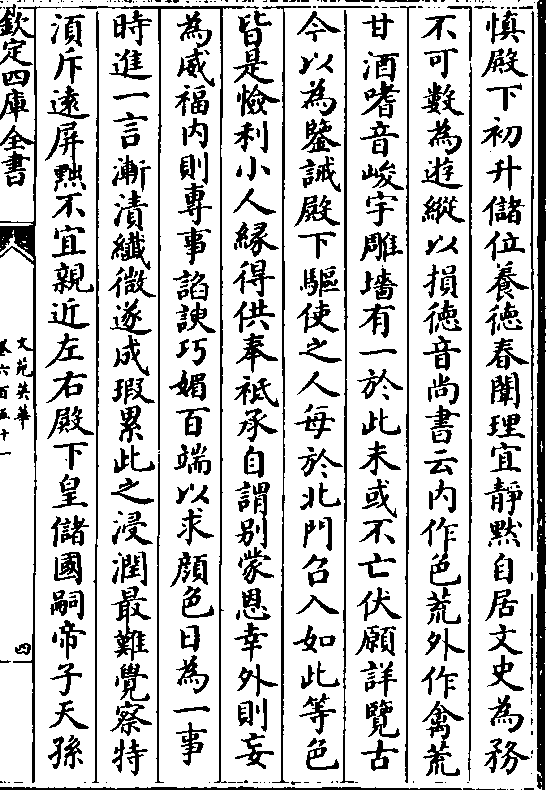 慎殿下初升儲位養徳春闈理宜靜黙自居文史為務
不可數為遊縱以損徳音尚書云内作色荒外作禽荒
甘酒嗜音峻宇雕墻有一於此未或不亡伏願詳覽古
今以為鑒誡殿下驅使之人毎於北門召入如此等色
皆是憸利小人縁得供奉祗承自謂别蒙恩幸外則妄
為威福内則專事諂諛巧媚百端以求顔色日為一事
時進一言漸漬纎微遂成瑕累此之浸潤最難覺察特
湏斥逺屏黜不宜親近左右殿下皇儲國嗣帝子天孫
欽定四庫全書
文苑英華
卷六百五十一
四